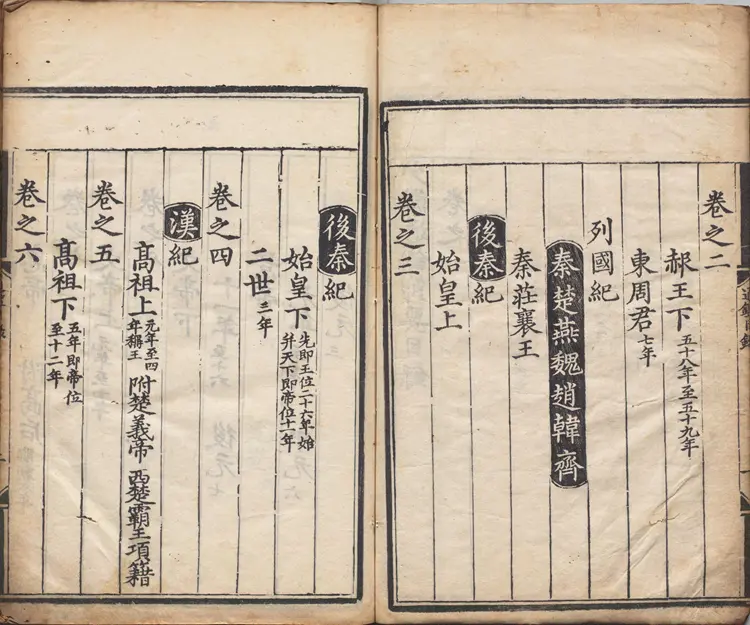 卷之二
郝王下五十八年至五十九年
東周君七年
列國紀
秦楚燕魏趙韓齊
秦莊襄王
後秦紀
始皇上
卷之三
後秦紀
始皇下先即王位二十六年始并天下即帝位十一年
二世三年
卷之四
漢紀
髙祖上元年至四年稱王附楚義帝西楚霸王項籍
卷之五
髙祖下五年即帝位至十二年
卷之六